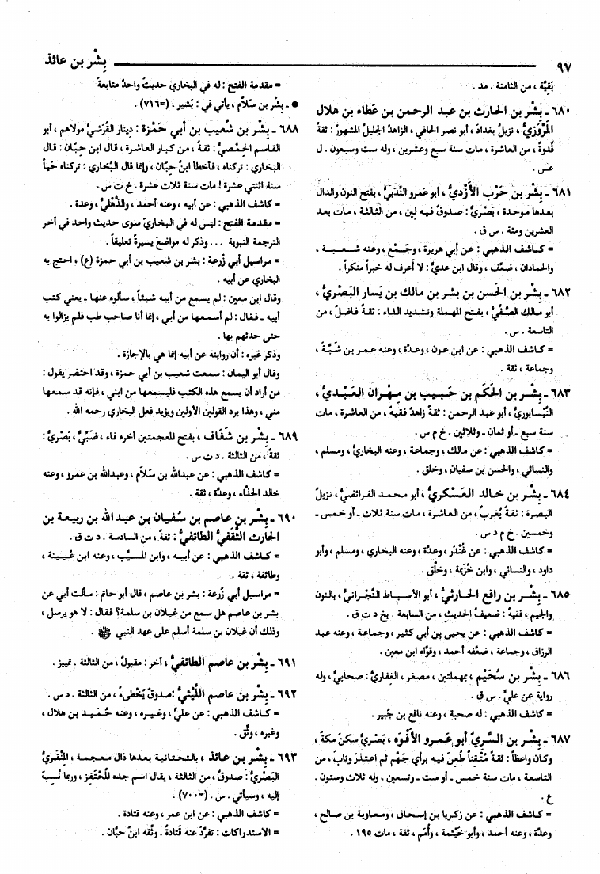 ٩٧
بِشْر بن عائذ
بَقِيَّة ، من الثامنة . مد .
٦٨٠ ـ بِشْر بن الحارث بن عبد الرحمن بن عطاء بن هلال
المَرْوَزيّ ، نزيل بغداد ، أبو نصر الحافي ، الزاهد الجليل المشهور : ثقةٌ
قُدوة ، من العاشرة ، مات سنة سبع وعشرين ، وله ست وسبعون . ل
عس .
٦٨١ ـ بِشْر بن حَرْب الأزْدي ، أبو عَمرو النَّدَبي ، بفتح النون والدال
بعدها موحدة ، بَصْريٌّ : صدوقٌ فيه لِين ، من الثالثة ، مات بعد
العشرين ومئة . س ق .
= كاشف الذهبي : عن أبي هريرة ، وجَمْع ، وعنه شعبة ،
والحمادان ، ضعِّف ، وقال ابن عدي : لا أعرف له خبراً منكراً .
٦٨٢ ـ بِشْر بن الحَسن بن بشر بن مالك بن يَسار البَصْري ،
أبو مالك الصُّفّي ، بفتح المهملة وتشديد الفاء : ثقةٌ فاضل ، من
التاسعة . س .
= كاشف الذهبي : عن ابن عون ، وعدَّة ، وعنه عمر بن شَبَّة ،
وجماعة ، ثقة .
٦٨٣ ـ بِشْر بن الحَكَم بن حَبيب بن مِهْران العَبْدي ،
النَّيْسابوري ، أبو عبد الرحمن : ثقةٌ زاهدٌ فقيهٌ ، من العاشرة ، مات
سنة سبع ـ أو ثمان ـ وثلاثين . خ م س .
= كاشف الذهبي : عن مالك ، وجماعة ، وعنه البخاري ، ومسلم ،
والنسائي ، والحسن بن سفيان ، وخلق .
٦٨٤ ـ بِشْر بن خالد العَسْكري ، أبو محمد الفرائضي ، نزيل
البصرة : ثقةٌ يُغرِب ، من العاشرة ، مات سنة ثلاث ـ أو خمس ـ
وخمسين . خ م د س .
= كاشف الذهبي : عن غُنْدَر ، وعدَّة ، وعنه البخاري ، ومسلم ، وأبو
داود ، والنسائي ، وابن خُزَيمة ، وخلْق .
٦٨٥ ـ بِشْر بن رافع الحارثي ، أبو الأسباط النَّجْراني ، بالنون
والجيم ، فقيهٌ : ضعيفُ الحديث ، من السابعة . بخ د ت ق .
= كاشف الذهبي : عن يحيى بن أبي كثير ، وجماعة ، وعنه عبد
الرزاق ، وجماعة ، ضعَّفه أحمد ، وقوَّاه ابن معين .
٦٨٦ ـ بِشْر بن سُحَيْم ، بمهملتين ، مصغر ، الغِفاري : صحابيٌّ ، وله
رواية عن عليّ . س ق .
= كاشف الذهبي : له صحبة ، وعنه نافع بن جُبير .
٦٨٧ ـ بِشْر بن السَّريّ أبو عمرو الأَفْوَه ، بَصْريٌّ سَكَن مكة ،
وكان واعظاً : ثقةٌ متْقِناً طُعِنَ فيه برأي جَهْم ثم اعتذرَ وتاب ، من
التاسعة ، مات سنة خمس ـ أو ست ـ وتسعين ، وله ثلاث وستون .
ع .
= كاشف الذهبي : عن زكريا بن إسحاق ، ومعاوية بن صالح ،
وعدَّة ، وعنه أحمد ، وأبو خَيْثمة ، وأُمَم ، ثقة ، مات ١٩٥ .
= مقدمة الفتح : له في البخاري حديثٌ واحدٌ متابعة
● ـ بِشْر بن سَلّام ، يأتي في : بَشير . (=٧١٦) .
٦٨٨ ـ بِشْر بن شُعيب بن أبي حَمْزة : دينار القُرَشي مولاهم ، أبو
القاسم الحِمْصي : ثقةٌ ، من كبار العاشرة ، قال ابن حِبّان : قال
البخاري : تركناه ، فأخطأ ابنُ حِبّان ، وإنما قال البُخاري : تركناه حَيّاً
سنة اثنتي عشرة ! مات سنة ثلاث عشرة . خ ت س .
= كاشف الذهبي : عن أبيه ، وعنه أحمد ، والذُّهْلي ، وعدة .
= مقدمة الفتح : ليس له في البخاريِّ سوى حديث واحد في آخر
الترجمة النبوية ... وذكر له مواضع يسيرة تعليقاً .
= مراسيل أبي زُرعة : بشر بن شعيب بن أبي حمزة (ع) ، احتج به
البخاري عن أبيه .
وقال ابن معين : لم يسمع من أبيه شيئاً ، سألوه عنها ـ يعني كتب
أبيه ـ فقال : لم أسمعها من أبي ، إنما أنا صاحب طب فلم يزالوا به
حتى حدثهم بها .
وذكر غيره : أن روايته عن أبيه إنما هي بالإجازة .
وقال أبو اليمان : سمعت شعيب بن أبي حمزة ، وقد احتضر يقول :
من أراد أن يسمع هذه الكتب فليسمعها من ابني ، فإنه قد سمعها
مني ، وهذا يرد القولين الأولين ويؤيد فعل البخاري رحمه الله .
٦٨٩ ـ بِشْر بن شَغَاف ، بفتح المعجمتين آخره فاء ، ضَبِّيٌّ ، بَصْريٌّ :
ثقةٌ ، من الثالثة . د ت س .
= كاشف الذهبي : عن عبدالله بن سَلَام ، وعبدالله بن عمرو ، وعنه
خالد الحذَّاء ، وعدَّة ، ثقة .
٦٩٠ ـ بِشْر بن عاصم بن سفيان بن عبد الله بن ربيعة بن
الحارث الثَّقَفيُّ الطائفيُّ : ثقةٌ ، من السادسة . د ت ق .
= كاشف الذهبي : عن أبيه ، وابن المسيّب ، وعنه ابن عُيينة ،
وطائفة ، ثقة .
= مراسيل أبي زُرعة : بشر بن عاصم ، قال أبو حاتم : سألت أبي عن
بشر بن عاصم هل سمع من غيلان بن سلمة؟ فقال : لا هو يرسل ،
وذلك أن غيلان بن سلمة أسلم على عهد النبي ﷺ .
٦٩١ ـ بِشْر بن عاصم الطائفيُّ ، آخر : مقبولٌ ، من الثالثة . تمييز .
٦٩٢ ـ بِشْر بن عاصم اللَّيْثي : صدوقٌ يُخْطىءُ ، من الثالثة . د س .
= كاشف الذهبي : عن عليّ ، وغيره ، وعنه حُمَيد بن هلال ،
وغيره ، وثِّق .
٦٩٣ ـ بِشْر بن عائذ ، بالتحتانية بعدها ذال معجمة ، المُنْقَري
البَصْري : صدوقٌ ، من الثالثة ، يقال اسم جده المُحْتَفِز ، وربما نُسِبَ
إليه ، وسيأتي . س . (=٧٠٠) .
= كاشف الذهبي : عن ابن عمر ، وعنه قتادة .
= الاستدراكات : تفرَّد عنه قَتادة . وثّقه ابن حِبَّان .